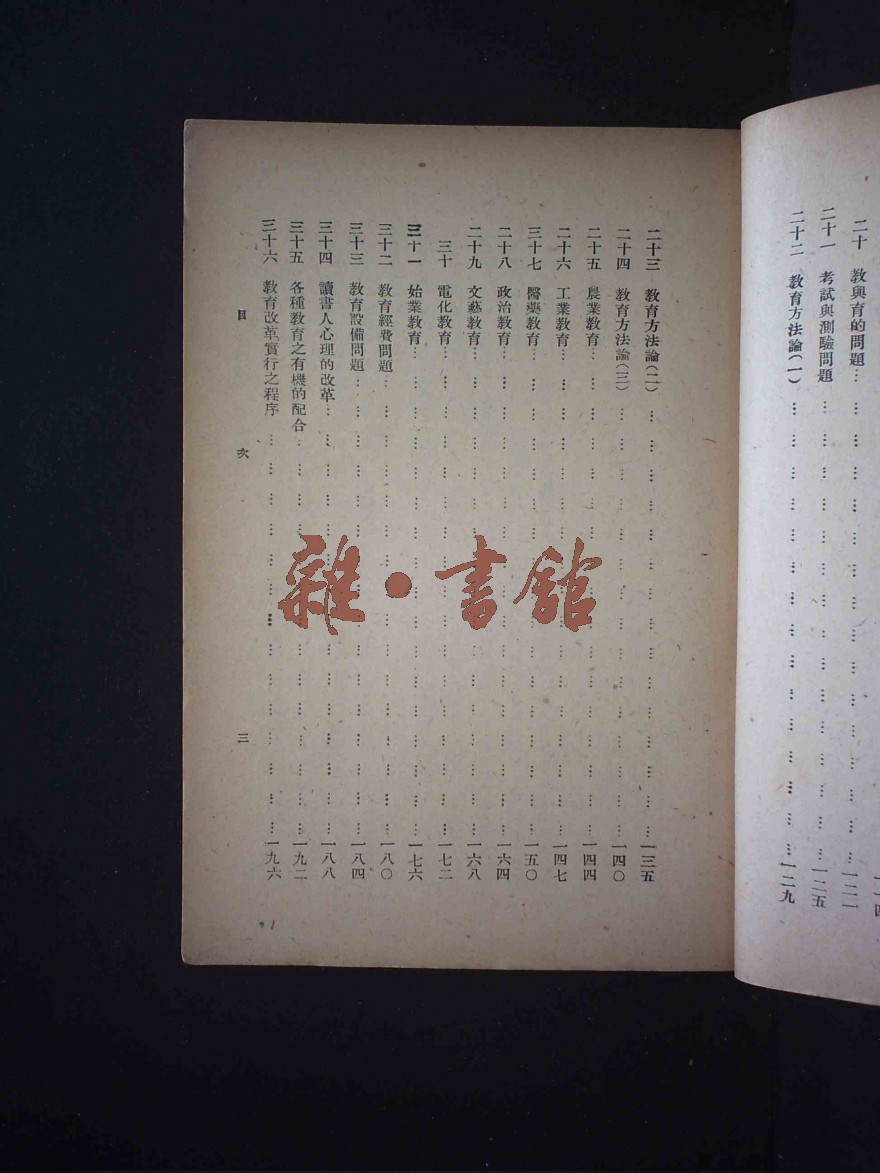 二十 教與育的問題… … … … … … … … … … … … … … … … …一二一
二十一 考試與測驗問題 … … … … … … … … … … … … … … … …一二五
二十二 教育方法論(一) … … … … … … … … … … … … … … … …一二九
二十三 教育方法論(二) … … … … … … … … … … … … … …一三五
二十四 教育方法論(三) … … … … … … … … … … … … … …一四〇
二十五 農業教育… … … … … … … … … … … … … … … …一四四
二十六 工業教育… … … … … … … … … … … … … … … …一四七
三十七 醫藥教育… … … … … … … … … … … … … … … …一五〇
二十八 政治教育… … … … … … … … … … … … … … … …一六四
二十九 文藝教育… … … … … … … … … … … … … … … …一六八
三十 電化教育… … … … … … … … … … … … … … … …一七二
三十一 始業教育… … … … … … … … … … … … … … … …一七六
三十二 教育經費問題… … … … … … … … … … … … … … …一八〇
三十三 教育設備問題… … … … … … … … … … … … … … …一八四
三十四 讀書人心理的改革… … … … … … … … … … … … … …一八八
三十五 各種教育之有機的配合… … … … … … … … … … … … …一九二
三十六 教育改革實行之程序… … … … … … … … … … … … … …一九六
目 次 三
雜·書館